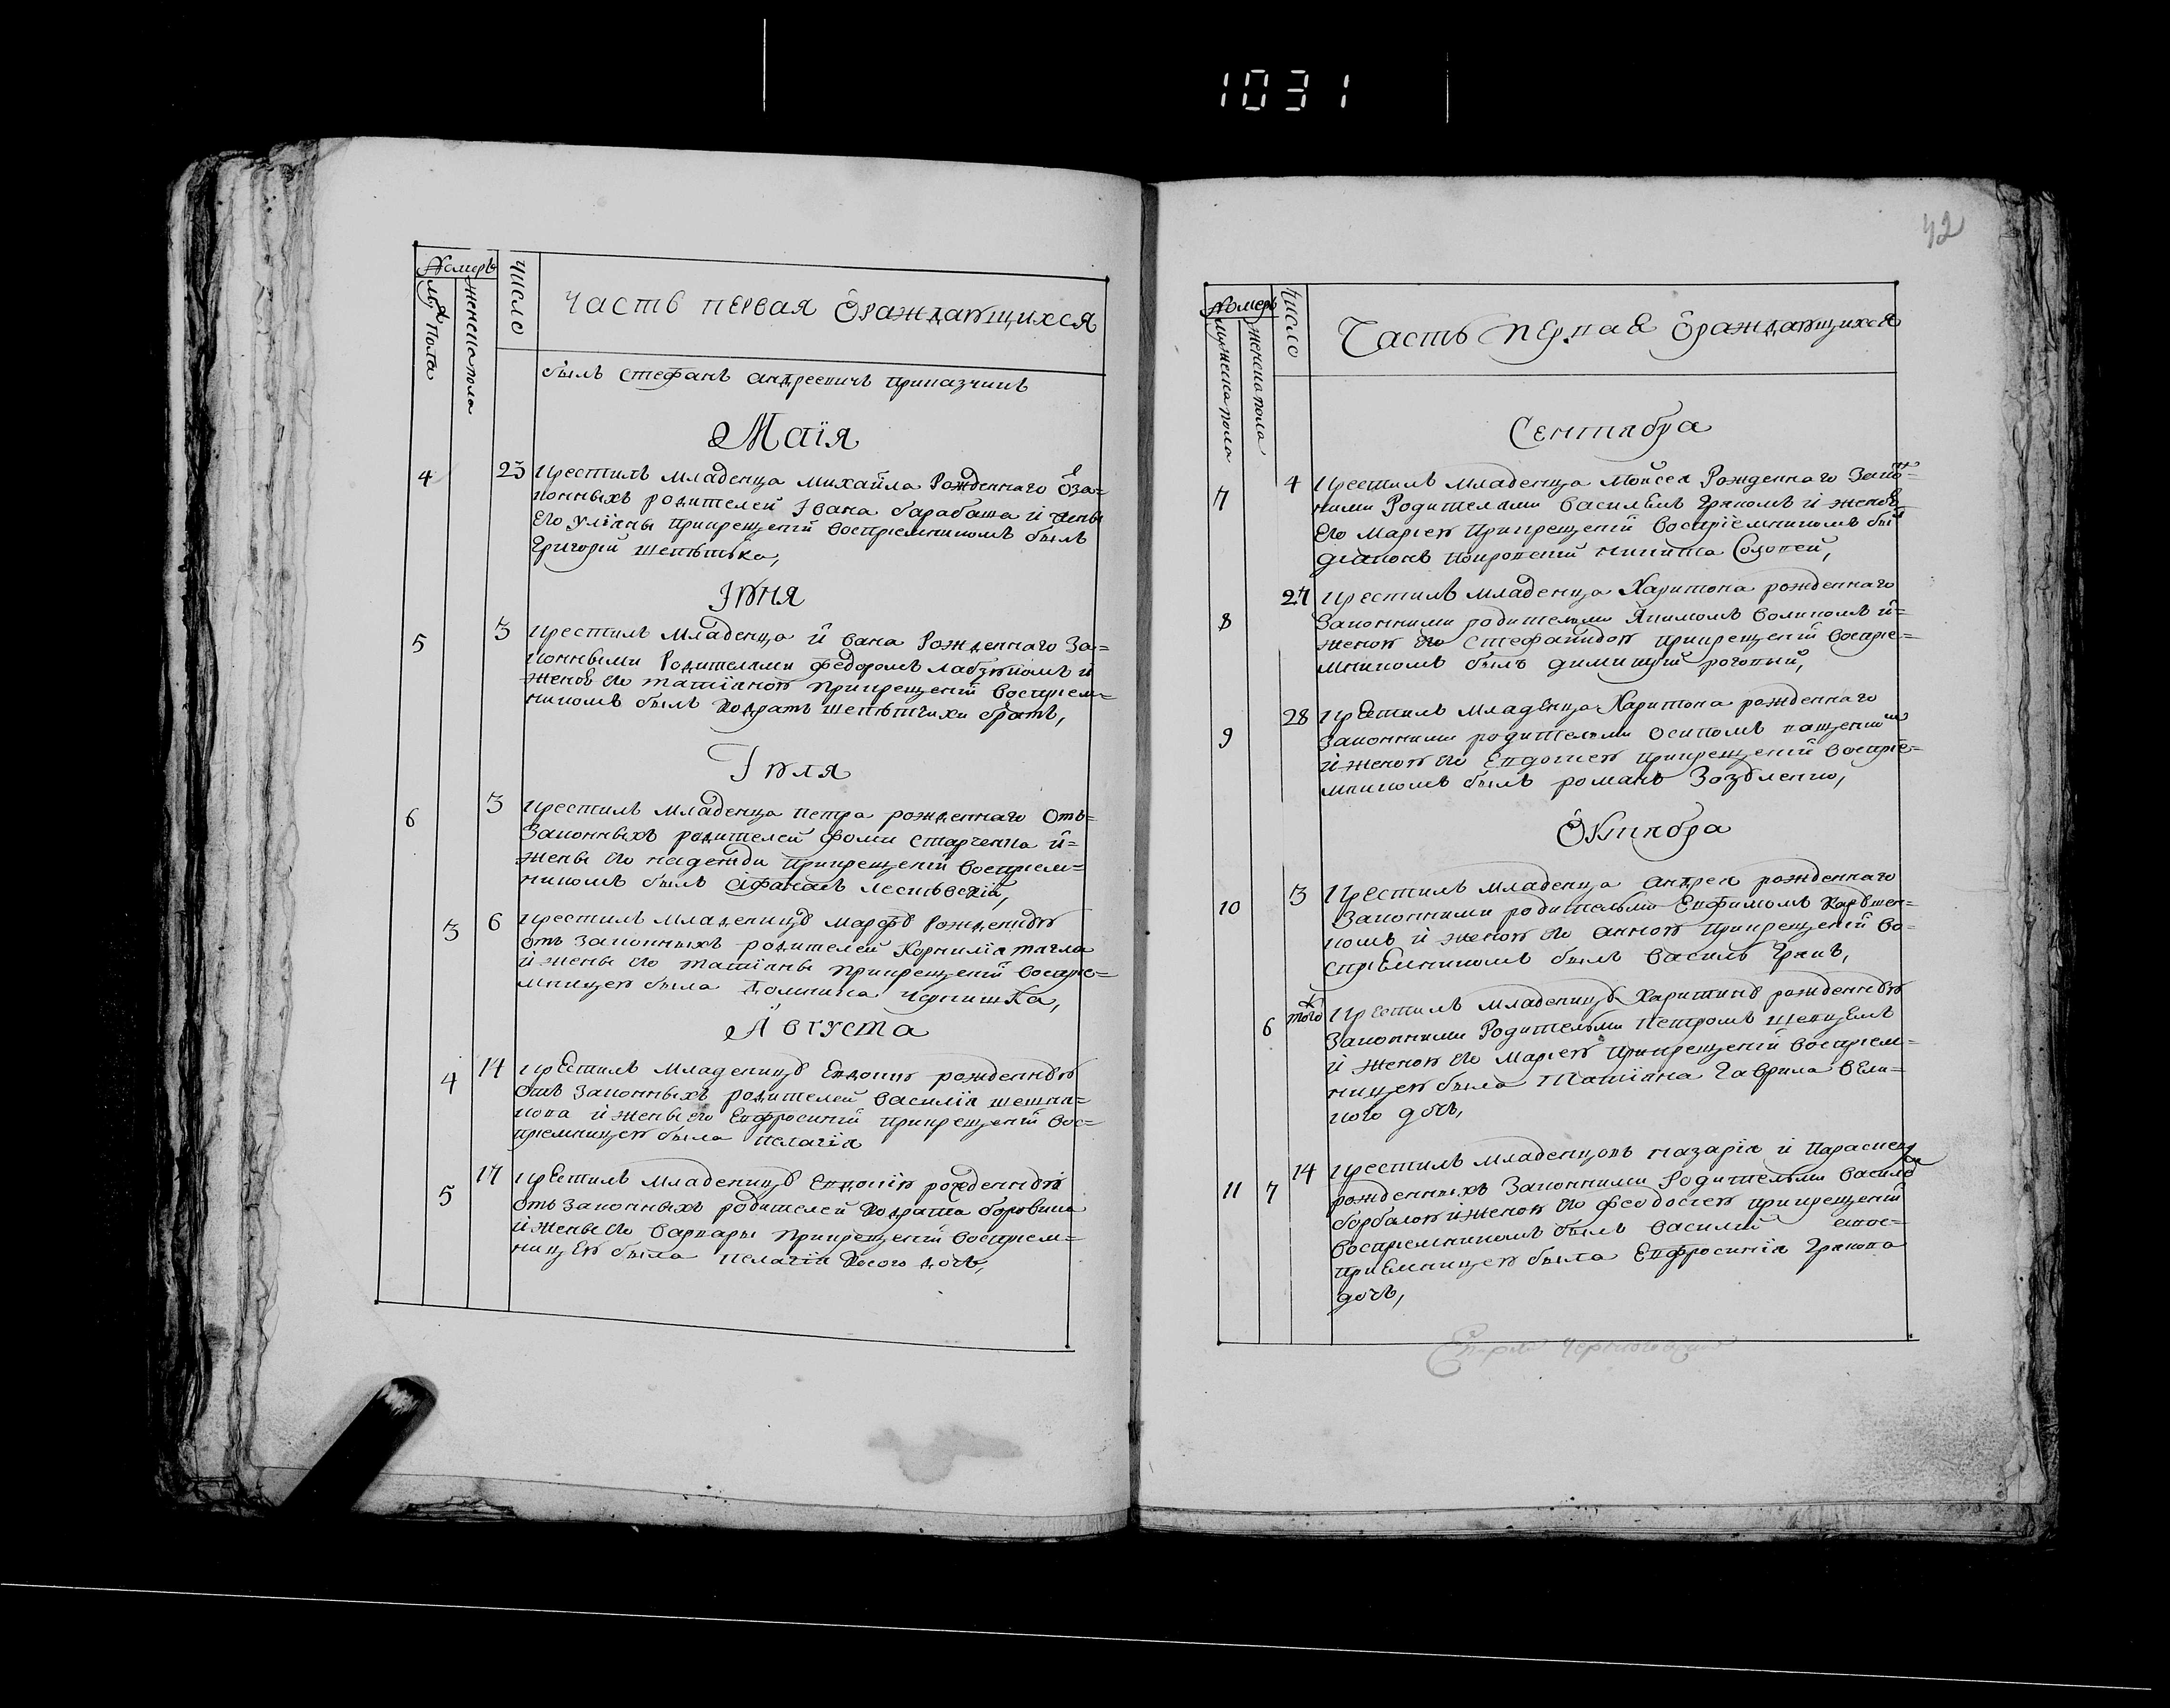 1031
Номеръ
мꙋ: пола
женска пола
число
Часть первая ѡраждающихся
былъ Стефанъ Андреевичъ приказчикъ
Маія
4 23 Крестилъ младенца Михайла Рожденнаго ѿ за=
конныхъ родителей Ивана барабаша и жены
Его Уліаны прикрещеніи воспріемникомъ былъ
Григорій
Іюня
5 3 Крестилъ Младенца Ивана Рожденнаго За=
конными Родителями Федоромъ и
женою его татіаною прикрещеніи Воспріем=
никомъ былъ Кодратъ братъ,
Іюля
6 3 Крестилъ младенца петра рожденнаго Отъ=
Законныхъ родителей Фоми Старченка и=
жены его надежди прикрещеніи Воспріем=
никомъ былъ
3 6 Крестилъ младеницꙋ марфꙋ Рожденнꙋю
отъ законныхъ родителей Корниліа тягла
и жены его татіаны прикрещеніи воспріе=
мницею была Домникіа
Августа
4 14 Крестилъ Младеницꙋ Евдокію рожденнꙋю
Отъ Законныхъ родителей Василіа шешпа=
кова и жены его Евфросиніи прикрещеніи Вос=
пріемницею была пелагіа
5 17 Крестилъ Младеницꙋ Евдокію рожденнꙋю
отъ законныхъ родителей Кодрата боровика
и жены его Варвары прикрещеніи Воспріем=
ницею была пелагіа Косого дочь,
42
Номеръ
мꙋжеска пола
женска пола
число
Часть первая ѡраждающихся
Сентября
7 4 Крестилъ Младенца Моѵсея Рожденнаго Закон=
ними Родителями Васильемъ Грякомъ и женою
Его Маріею Прикрещеніи Воспріемникомъ бы
діаконъ покровскій никита Соловей,
8 27 Крестилъ младенца Харитона рожденнаго
Законними родителми Якимомъ Воликомъ и=
женою его Стефанидою прикрещеніи Воспріе=
мникомъ былъ димитрій роговий,
9 28 Крестилъ Младенца Харитона рожденнаго
Законними родителями Осипомъ пащенкомъ
и женою его Евдокіею прикрещеніи Воспріе=
мникомъ былъ романъ Зозꙋленко,
Октября
10 3 Крестилъ Младенца Андрея рожденнаго
Законними родительми Евфимомъ Ковшен=
комъ и женою его Анною прикрещеніи Во=
спріемникомъ былъ Василь Грякъ,
6 того Крестилъ Младеницꙋ Харитинꙋ рожденнꙋю
Законними Родительми Петромъ Шевцемъ
и женою его Маріею прикрещеніи Воспріем=
ницею была Татіана Гаврила Вели=
кого дочь,
11 7 14 Крестилъ младенцовъ назаріа и Параскеву
рожденныхъ Законними Родительми Василе
борбалою и женою его Феодосіею прикрещеніи
Воспріемникомъ былъ Василій а вос=
пріемницею была Евфросиніа Грякова
дочь,